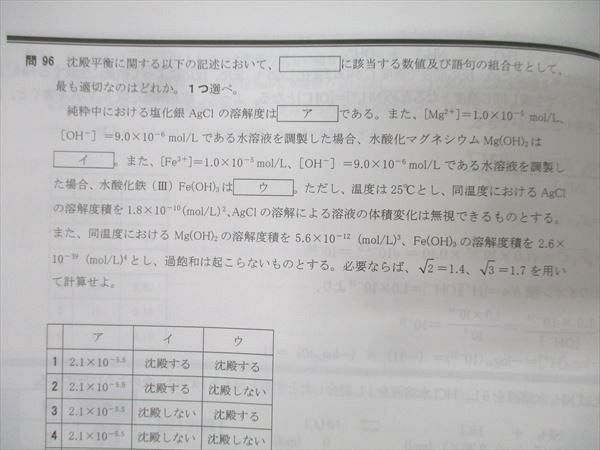 問 96 沈殿平衡に関する以下の記述において、 に該当する数値及び語句の組合せとして、
最も適切なのはどれか。1つ選べ。
純粋中における塩化銀 AgCl の溶解度は ア である。また、[Mg²⁺]=1.0×10⁻⁵ mol/L、
[OH⁻] =9.0×10⁻⁶ mol/L である水溶液を調製した場合、水酸化マグネシウム Mg(OH)₂ は
イ 。また、[Fe³⁺]=1.0×10⁻⁵ mol/L、[OH⁻] =9.0×10⁻⁶ mol/L である水溶液を調製し
た場合、水酸化鉄 (Ⅲ) Fe(OH)₃ は ウ 。ただし、温度は 25℃とし、同温度における AgCl
の溶解度積を 1.8×10⁻¹⁰ (mol/L)²、AgCl の溶解による溶液の体積変化は無視できるものとする。
また、同温度における Mg(OH)₂ の溶解度積を 5.6×10⁻¹² (mol/L)³、Fe(OH)₃ の溶解度積を 2.6×
10⁻³⁹ (mol/L)⁴ とし、過飽和は起こらないものとする。必要ならば、√2=1.4、√3=1.7 を用い
て計算せよ。
ア イ ウ
1 2.1×10⁻⁵·⁵ 沈殿する 沈殿する
2 2.1×10⁻⁵·⁵ 沈殿する 沈殿しない
3 2.1×10⁻⁵·⁵ 沈殿しない 沈殿する
4 2.1×10⁻⁵·⁵ 沈殿しない 沈殿しない